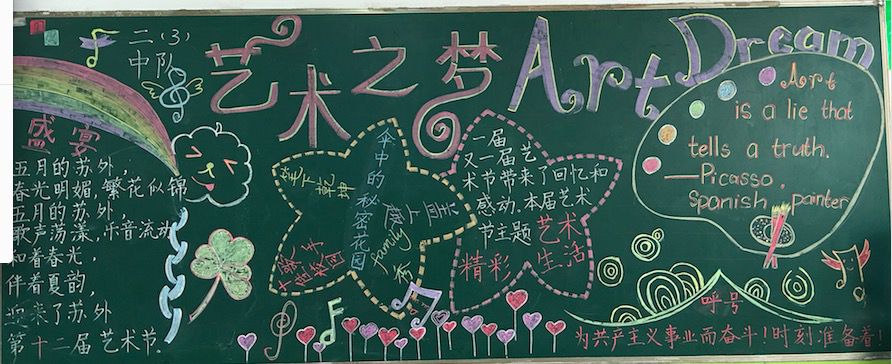 二(3)
中队
艺术之梦
Art Dream
盛宴
五月的苏外，
春光明媚,繁花似锦
五月的苏外，
歌声荡漾,乐音流动
和着春光，
伴着夏韵，
迎来了苏外
第十二届艺术节.
伞中的秘密花园
family
一届
又一届艺
术节带来了回忆和
感动.本届艺术
节主题 艺术
精彩 生活
Art
is a lie that
tells a truth.
—Picasso,
Spanish painter
呼号
为共产主义事业而奋斗!时刻准备着!